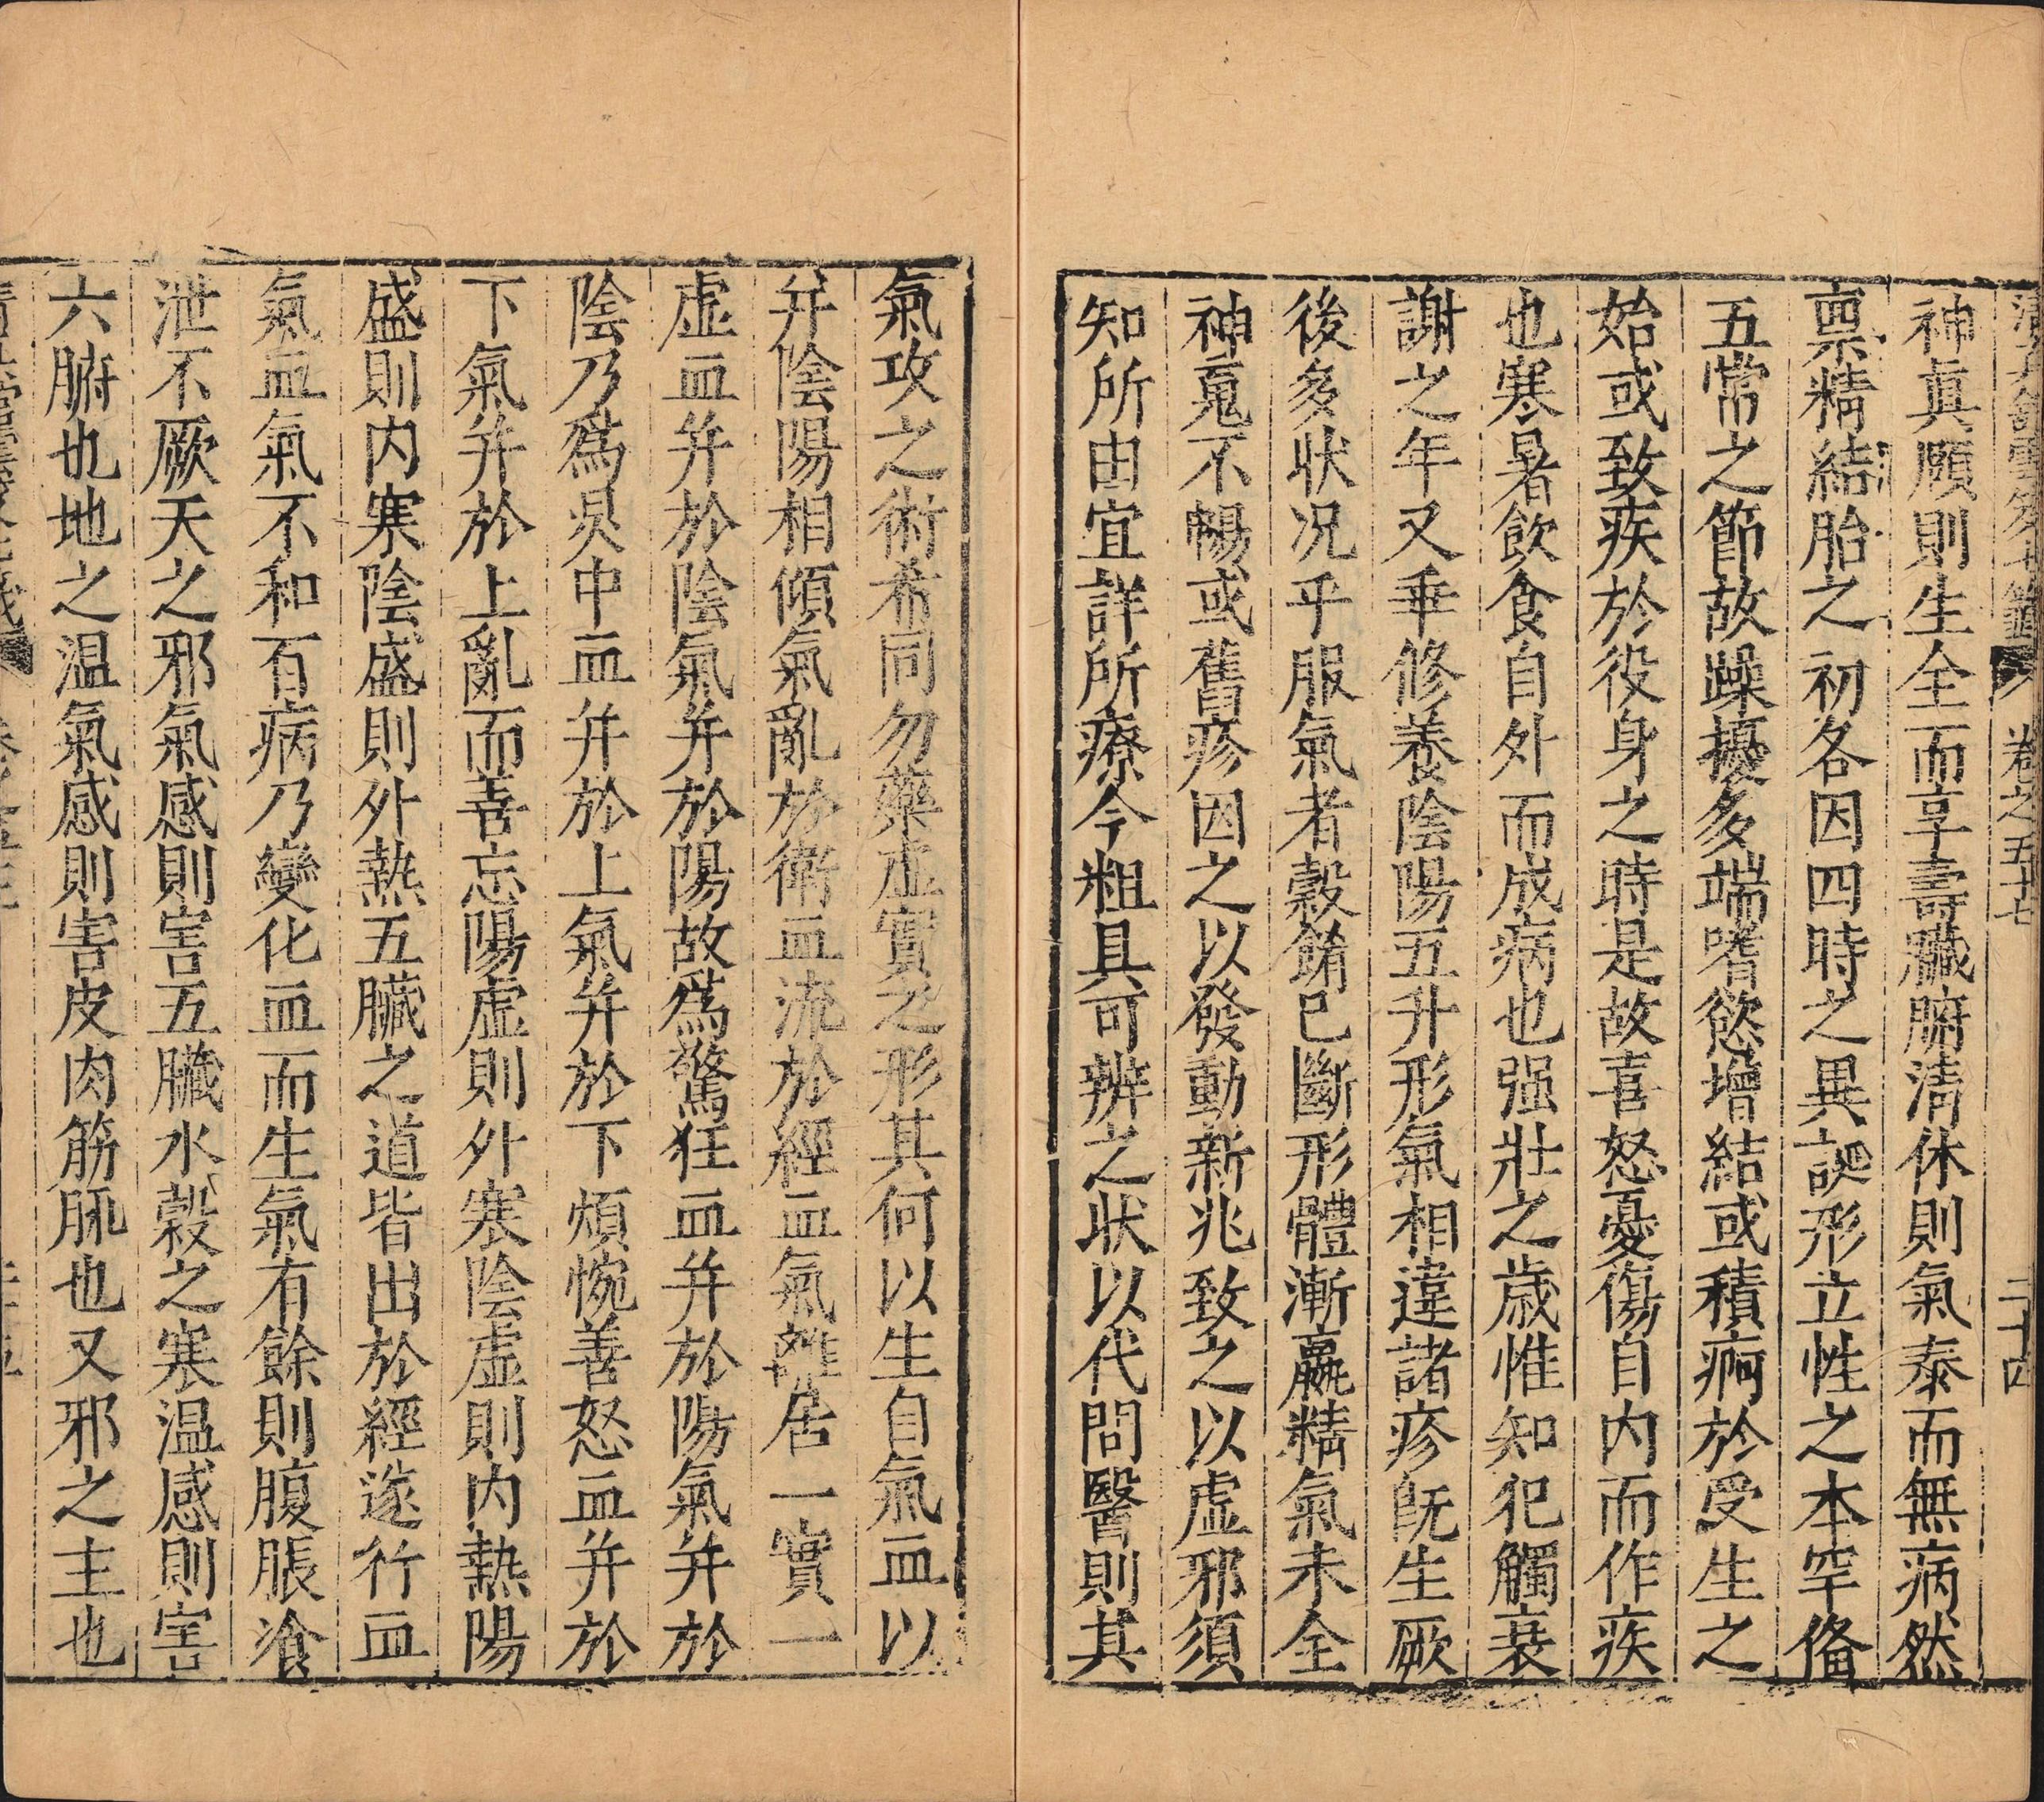 卷之五十七 二十四
神眞願則生全而享壽臟腑淸休則氣泰而無病然
禀精結胎之初各因四時之異誕形立性之本罕俻
五常之節故躁擾多端嗜慾增結或積痾於受生之
始或致疾於役身之時是故喜怒憂傷自内而作疾
也寒暑飲食自外而成病也强壯之歳惟知犯觸衰
謝之年又乖修養陰陽五升形氣相違諸疹旣生厥
後多状况乎服氣者穀餚已斷形體漸羸精氣未全
神䰟不暢或舊疹因之以發動新兆致之以虚邪須
知所由宜詳所療今粗具可辨之状以代問醫則其
氣攻之術希同勿藥虚實之形其何以生自氣血以
并陰陽相傾氣亂於衛血流於經血氣離居一實一
虚血并於陰氣并於陽故爲驚狂血并於陽氣并於
陰乃爲炅中血并於上氣并於下煩惋善怒血并於
下氣并於上亂而喜忘陽虚則外寒陰虚則内熱陽
盛則内寒陰盛則外熱五臟之道皆出於經遂行血
氣血氣不和百病乃變化血而生氣有餘則腹脹飡
泄不厥天之邪氣感則害五臟水穀之寒温感則害
六腑也地之温氣感則害皮肉筋脈也又邪之主也